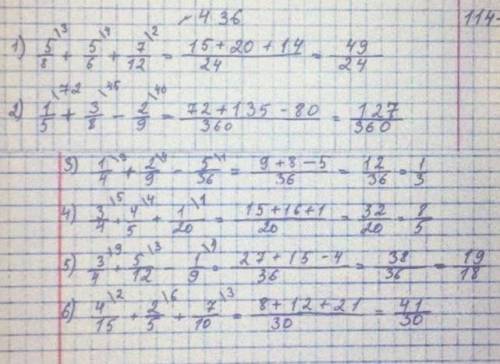 436
114-
1) 5/8\3 + 5/6\4 + 7/12\2 = (15+20+14)/24 = 49/24
2) 1/5\72 + 3/8\45 - 2/9\40 = (72+135-80)/360 = 127/360
3) 1/4\9 + 2/9\4 - 5/36\1 = (9+8-5)/36 = 12/36 = 1/3
4) 3/4\5 + 4/5\4 + 1/20\1 = (15+16+1)/20 = 32/20 = 8/5
5) 3/4\9 + 5/12\3 - 1/9\4 = (27+15-4)/36 = 38/36 = 19/18
6) 4/15\2 + 2/5\6 + 7/10\3 = (8+12+21)/30 = 41/30